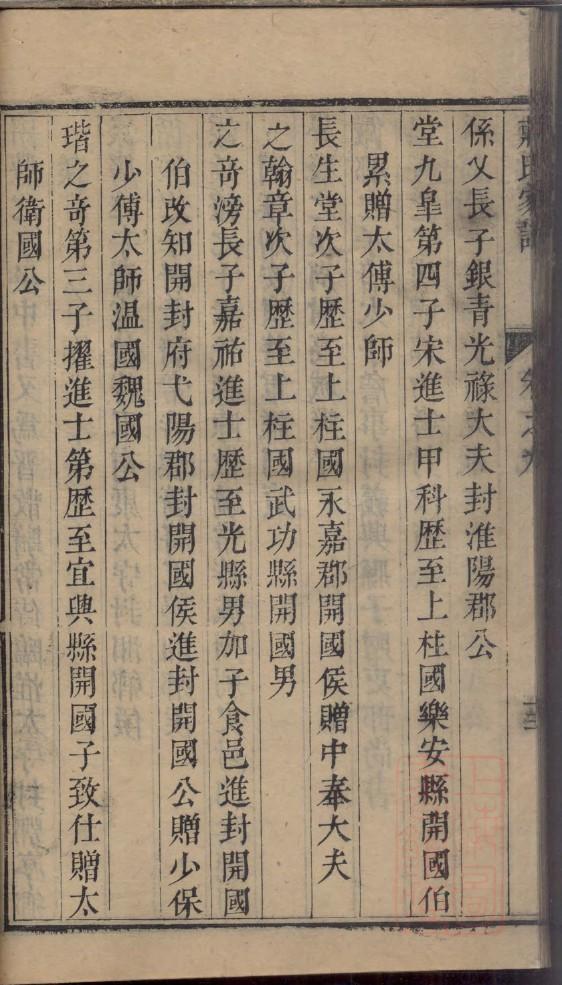 係乂長子銀青光祿大夫封淮陽郡公
堂九臯第四子宋進士甲科歷至上柱國樂安縣開國伯
累贈太傅少師
長生堂次子歷至上柱國永嘉郡開國侯贈中奉大夫
之翰章次子歷至上柱國武功縣開國男
之奇滂長子嘉祐進士歷至光縣男加子食邑進封開國
伯改知開封府弋陽郡封開國侯進封開國公贈少保
少傅太師温國魏國公
瑎之奇第三子擢進士第歷至宜興縣開國子致仕贈太
師衛國公